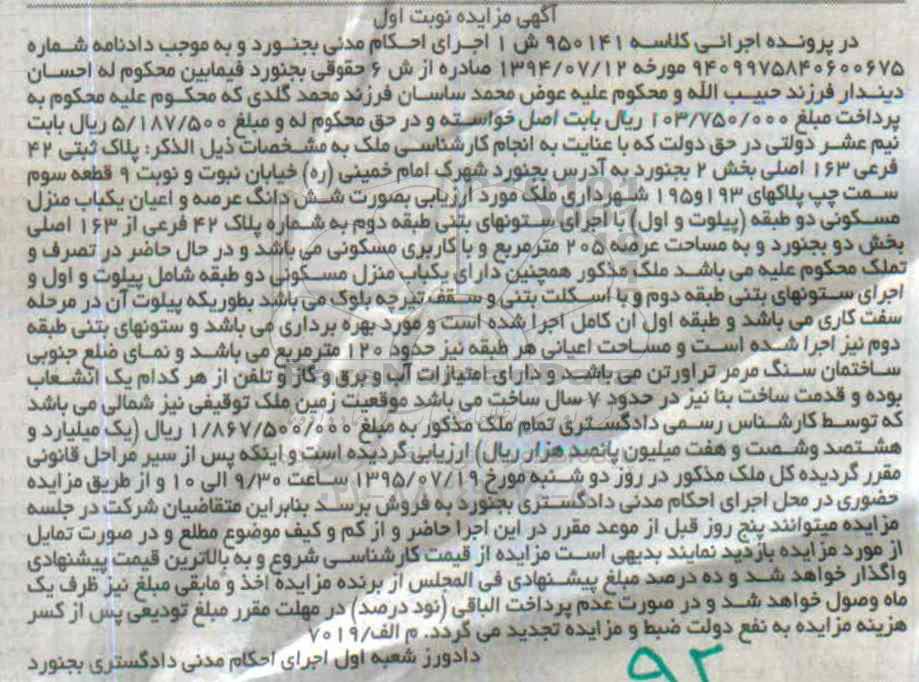 آگهی مزایده نوبت اول
در پرونده اجرائی کلاسه ۹۵۰۱۴۱ ش ۱ اجرای احکام مدنی بجنورد و به موجب دادنامه شماره
۹۴۰۹۹۷۵۸۴۰۶۰۰۶۷۵ مورخه ۱۳۹۴/۰۷/۱۲ صادره از ش ۶ حقوقی بجنورد فیمابین محکوم له احسان
دیندار فرزند حبیب الله و محکوم علیه عوض محمد ساسان فرزند محمد گلدی که محکوم علیه محکوم به
پرداخت مبلغ ۱۰۳/۷۵۰/۰۰۰ ریال بابت اصل خواسته و در حق محکوم له و مبلغ ۵/۱۸۷/۵۰۰ ریال بابت
نیم عشر دولتی در حق دولت که با عنایت به انجام کارشناسی ملک به مشخصات ذیل الذکر: پلاک ثبتی ۴۲
فرعی ۱۶۳ اصلی بخش ۲ بجنورد به آدرس بجنورد شهرک امام خمینی (ره) خیابان نبوت و نوبت ۹ قطعه سوم
سمت چپ پلاکهای ۱۹۳و۱۹۵ شهرداری ملک مورد ارزیابی بصورت شش دانگ عرصه و اعیان یکباب منزل
مسکونی دو طبقه (پیلوت و اول) با اجرای ستونهای بتنی طبقه دوم به شماره پلاک ۴۲ فرعی از ۱۶۳ اصلی
بخش دو بجنورد و به مساحت عرصه ۲۰۵ مترمربع و با کاربری مسکونی می باشد و در حال حاضر در تصرف و
تملک محکوم علیه می باشد ملک مذکور همچنین دارای یکباب منزل مسکونی دو طبقه شامل پیلوت و اول و
اجرای ستونهای بتنی طبقه دوم و با اسکلت بتنی و سقف تیرچه بلوک می باشد بطوریکه پیلوت آن در مرحله
سفت کاری می باشد و طبقه اول آن کامل اجرا شده است و مورد بهره برداری می باشد و ستونهای بتنی طبقه
دوم نیز اجرا شده است و مساحت اعیانی هر طبقه نیز حدود ۱۲۰ مترمربع می باشد و نمای ضلع جنوبی
ساختمان سنگ مرمر تراورتن می باشد و دارای امتیازات آب و برق و گاز و تلفن از هر کدام یک انشعاب
بوده و قدمت ساخت بنا نیز در حدود ۷ سال ساخت می باشد موقعیت زمین ملک توقیفی نیز شمالی می باشد
که توسط کارشناس رسمی دادگستری تمام ملک مذکور به مبلغ ۱/۸۶۷/۵۰۰/۰۰۰ ریال (یک میلیارد و
هشتصد وشصت و هفت میلیون پانصد هزار ریال) ارزیابی گردیده است و اینکه پس از سیر مراحل قانونی
مقرر گردیده کل ملک مذکور در روز دو شنبه مورخ ۱۳۹۵/۰۷/۱۹ ساعت ۹/۳۰ الی ۱۰ و از طریق مزایده
حضوری در محل اجرای احکام مدنی دادگستری بجنورد به فروش برسد بنابراین متقاضیان شرکت در جلسه
مزایده میتوانند پنج روز قبل از موعد مقرر در این اجرا حاضر و از کم و کیف موضوع مطلع و در صورت تمایل
از مورد مزایده بازدید نمایند بدیهی است مزایده از قیمت کارشناسی شروع و به بالاترین قیمت پیشنهادی
واگذار خواهد شد و ده درصد مبلغ پیشنهادی فی المجلس از برنده مزایده اخذ و مابقی مبلغ نیز ظرف یک
ماه وصول خواهد شد و در صورت عدم پرداخت الباقی (نود درصد) در مهلت مقرر مبلغ تودیعی پس از کسر
هزینه مزایده به نفع دولت ضبط و مزایده تجدید می گردد. م الف/۷۰۱۹
دادورز شعبه اول اجرای احکام مدنی دادگستری بجنورد
۹۲